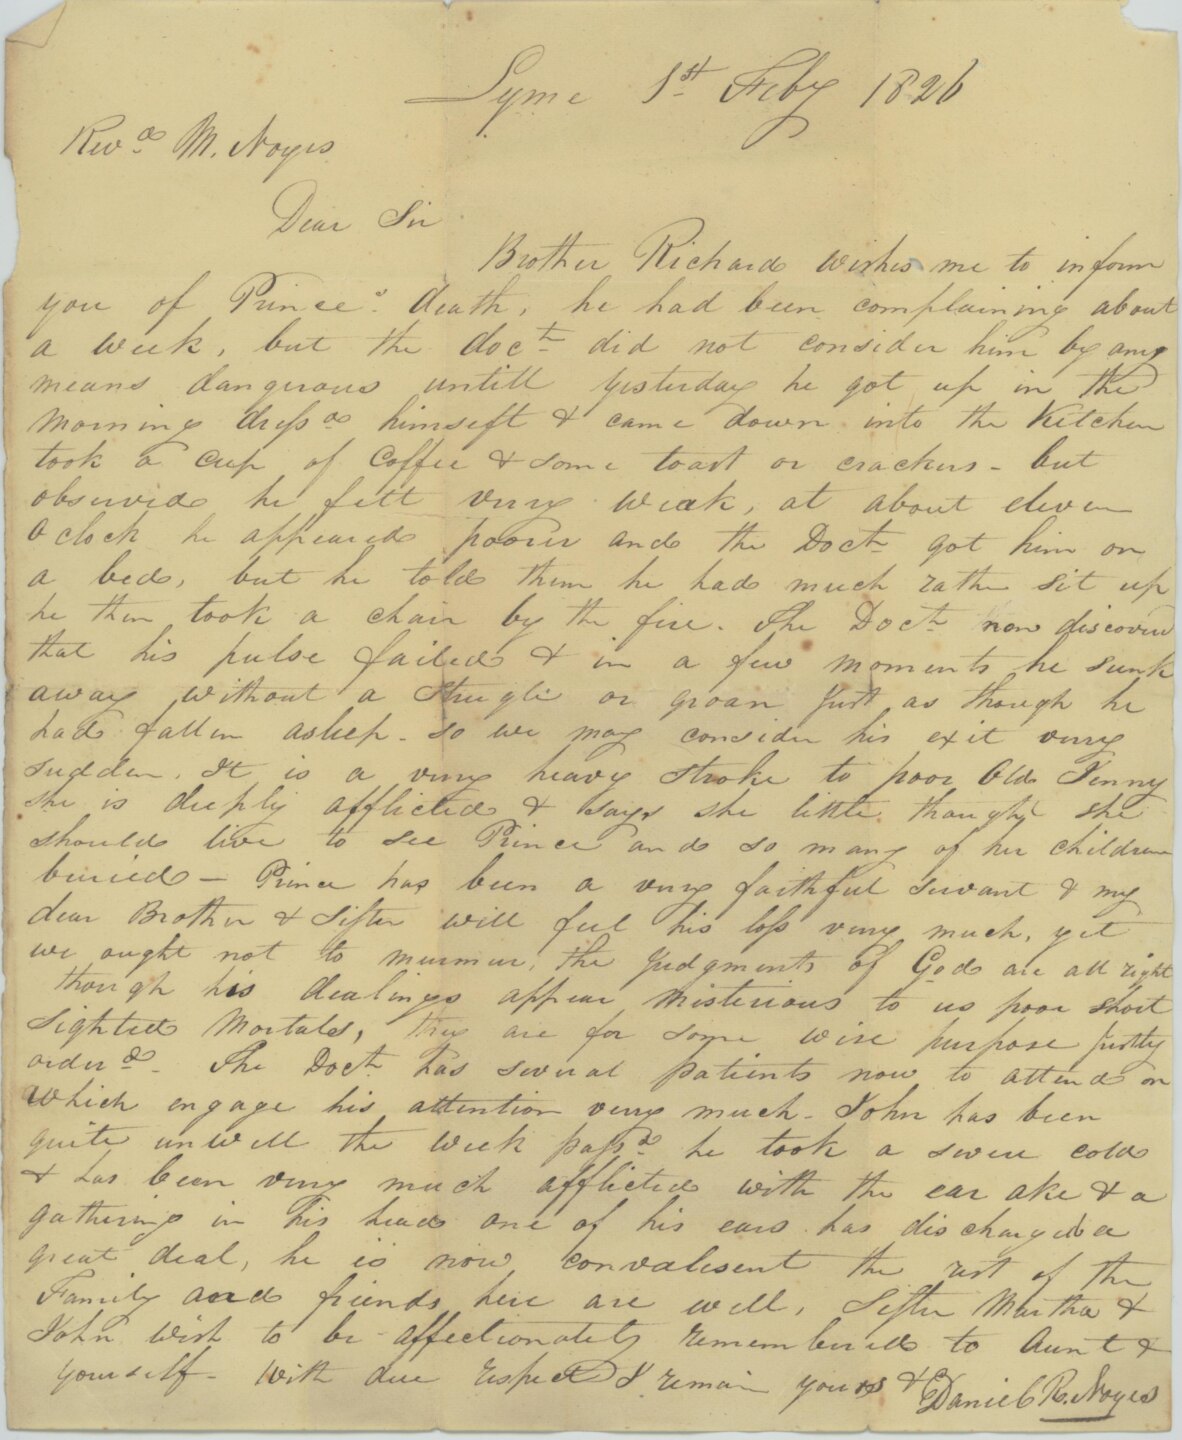 Lyme 1st Feby 1826
Revd M. Noyes
Dear Sir
Brother Richard wishes me to inform
you of Princes death, he had been complaining about
a week, but the doctr did not consider him by any
means dangerous untill yesterday he got up in the
morning dressd himself & came down into the Kitchen
took a cup of Coffee & some toast or crackers - but
observed he felt very weak, at about eleven
oclock he appeared poorer and the Doctr got him on
a bed, but he told them he had much rather sit up
he then took a chair by the fire. The Doctr now discoverd
that his pulse failed & in a few moments he sunk
away without a strugle or groan just as though he
had fallen asleep - so we may consider his exit very
sudden. It is a very heavy stroke to poor Old Jenny
she is deeply afflicted & says she little thought she
should live to see Prince and so many of her children
buried — Prince has been a very faithful servant & my
dear Brother & Sister will feel his loss very much, yet
we ought not to murmur, the Judgments of God are all right
though his dealings appear misterious to us poor short
sighted Mortals, they are for some wise purpose justly
orderd. The Doctr has several patients now to attend on
which engage his attention very much - John has been
quite unwell the week passd he took a severe cold
& has been very much afflicted with the ear ake & a
gathering in his head one of his ears has discharged a
great deal, he is now convalesent the rest of the
Family and friends here are well, Sister Martha &
John wish to be affectionately remembered to Aunt &
yourself - With due respect I remain yours &c Daniel R. Noyes